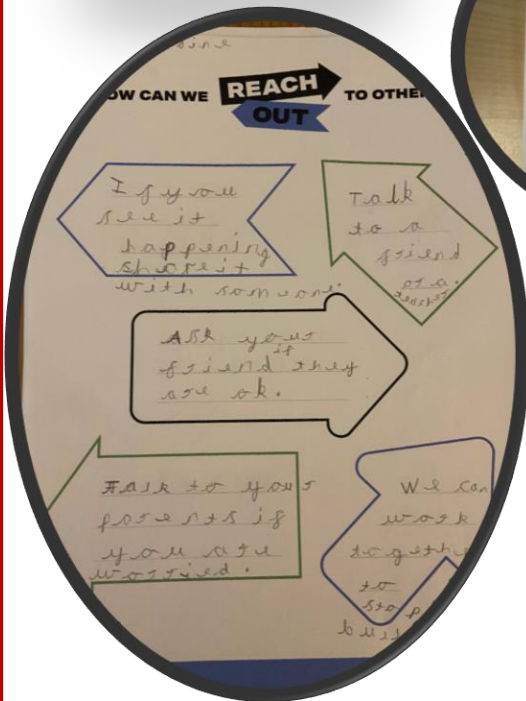 OW CAN WE REACH OUT TO OTHE
If you
see it
happening
share it
with someone.
Talk
to a
friend
or a
teacher.
Ask your
friend if they
are ok.
Talk to your
parents if
you are
worried.
We can
work
togethe
to
stop